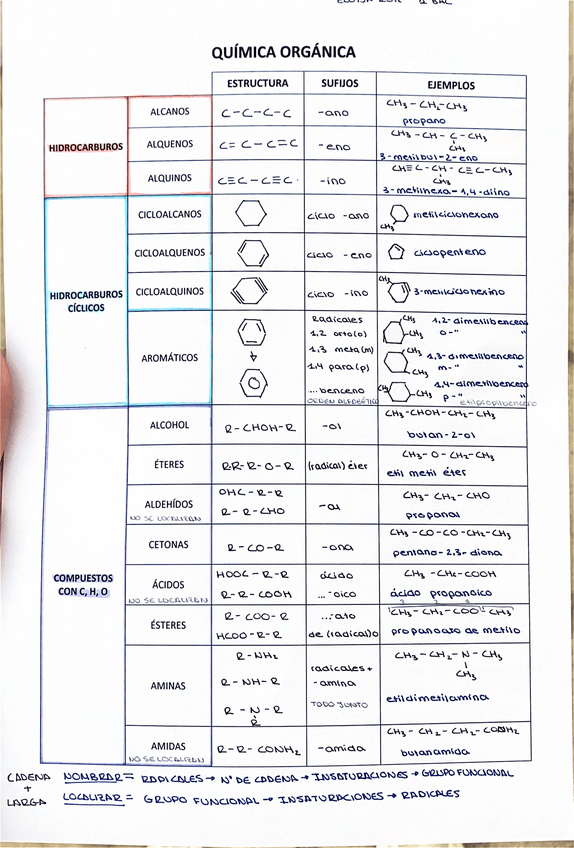 1 BAC
QUÍMICA ORGÁNICA
ESTRUCTURA SUFIJOS EJEMPLOS
HIDROCARBUROS
ALCANOS C-C-C-C -ano CH₃-CH₂-CH₃
propano
ALQUENOS C=C-C=C -eno CH₃-CH-C-CH₃
CH₃
3-metilbut-2-eno
ALQUINOS C≡C-C≡C- -ino CH≡C-CH-C≡C-CH₃
CH₃
3-metilhexa-1,4-diino
HIDROCARBUROS CÍCLICOS
CICLOALCANOS ciclo -ano CH₃ metilciclohexano
CICLOALQUENOS ciclo -eno ciclopenteno
CICLOALQUINOS ciclo -ino CH₃ 3-metilciclohexino
AROMÁTICOS
Radicales
1,2 orto(o)
1,3 meta(m)
1,4 para(p)
...benceno
ORDEN ALFABÉTICO
CH₃ CH₃ 1,2-dimetilbenceno
o- "
CH₃ CH₃ 1,3-dimetilbenceno
m- "
CH₃ CH₃ 1,4-dimetilbenceno
p- "
etilpropilbenceno
COMPUESTOS CON C, H, O
ALCOHOL R-CHOH-R -ol CH₃-CHOH-CH₂-CH₃
butan-2-ol
ÉTERES R-R-R-O-R (radical) éter CH₃-O-CH₂-CH₃
etil metil éter
ALDEHÍDOS
NO SE LOCALIZAN
OHC-R-R
R-R-CHO
-al
CH₃-CH₂-CHO
propanal
CETONAS R-CO-R -ona CH₃-CO-CO-CH₂-CH₃
pentano-2,3-diona
ÁCIDOS
NO SE LOCALIZAN
HOOC-R-R
R-R-COOH
ácido
...-oico
CH₃-CH₂-COOH
ácido propanoico
ÉSTERES
R-COO-R
HCOO-R-R
...-ato
de (radical)o
CH₃-CH₂-COO CH₃
propanoato de metilo
AMINAS
R-NH₂
R-NH-R
R-N-R
R
radicales+
-amina
TODO JUNTO
CH₃-CH₂-N-CH₃
CH₃
etildimetilamina
AMIDAS
NO SE LOCALIZAN
R-R-CONH₂ -amida
CH₃-CH₂-CH₂-CONH₂
butanamida
CADENA + LARGA
NOMBRAR = RADICALES → Nº DE CADENA → INSATURACIONES → GRUPO FUNCIONAL
LOCALIZAR = GRUPO FUNCIONAL → INSATURACIONES → RADICALES